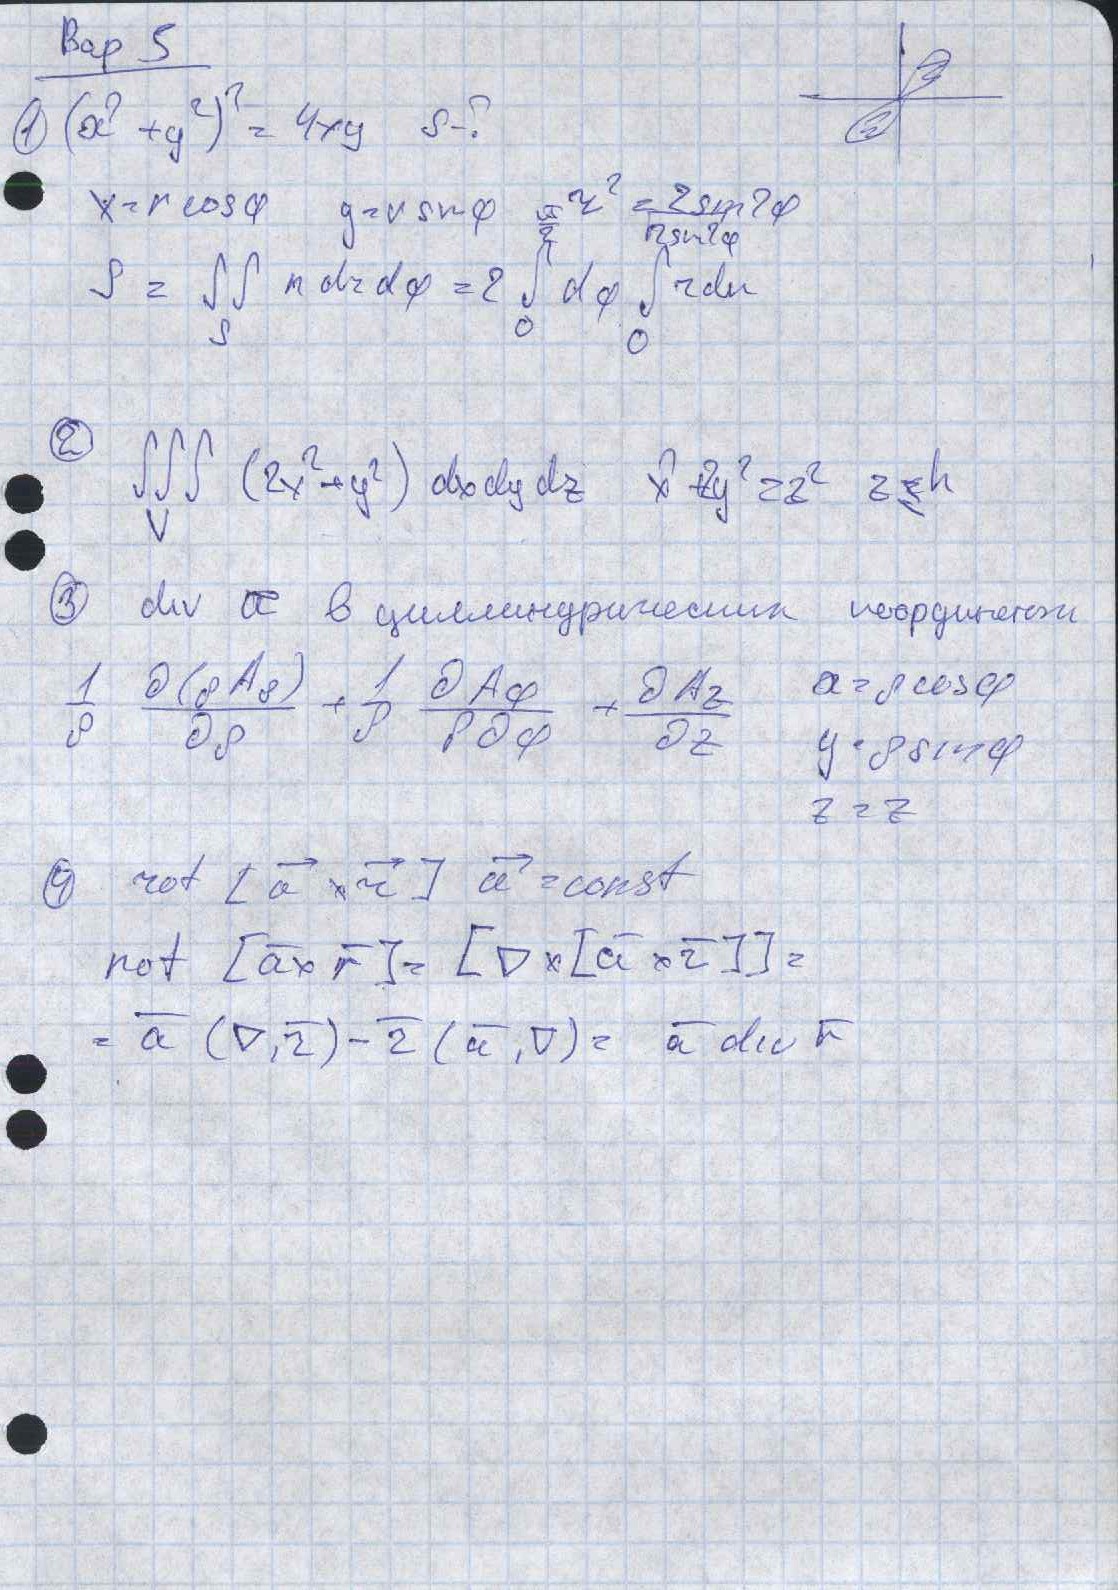 Вар 5
① (x² + y²)² = 4xy   S-?
x = r cosφ   y = r sinφ   r² = 2sin2φ
S = ∬_S r dr dφ = 2 ∫_0^{π/2} dφ ∫_0^{√2sin2φ} r dr
② ∭_V (2x² + y²) dx dy dz   x² + 2y² = z²   z ≤ h
③ div a в циллиндрических координатах
1/ρ ∂(ρAρ)/∂ρ + 1/ρ ∂Aφ/ρ∂φ + ∂Az/∂z   x = ρ cosφ
y = ρ sinφ
z = z
④ rot [a⃗ × r⃗]   a⃗ = const
rot [a̅ × r̅] = [∇ × [a̅ × r̅]] =
= a̅ (∇, r̅) - r̅ (a̅, ∇) = a̅ div r̅